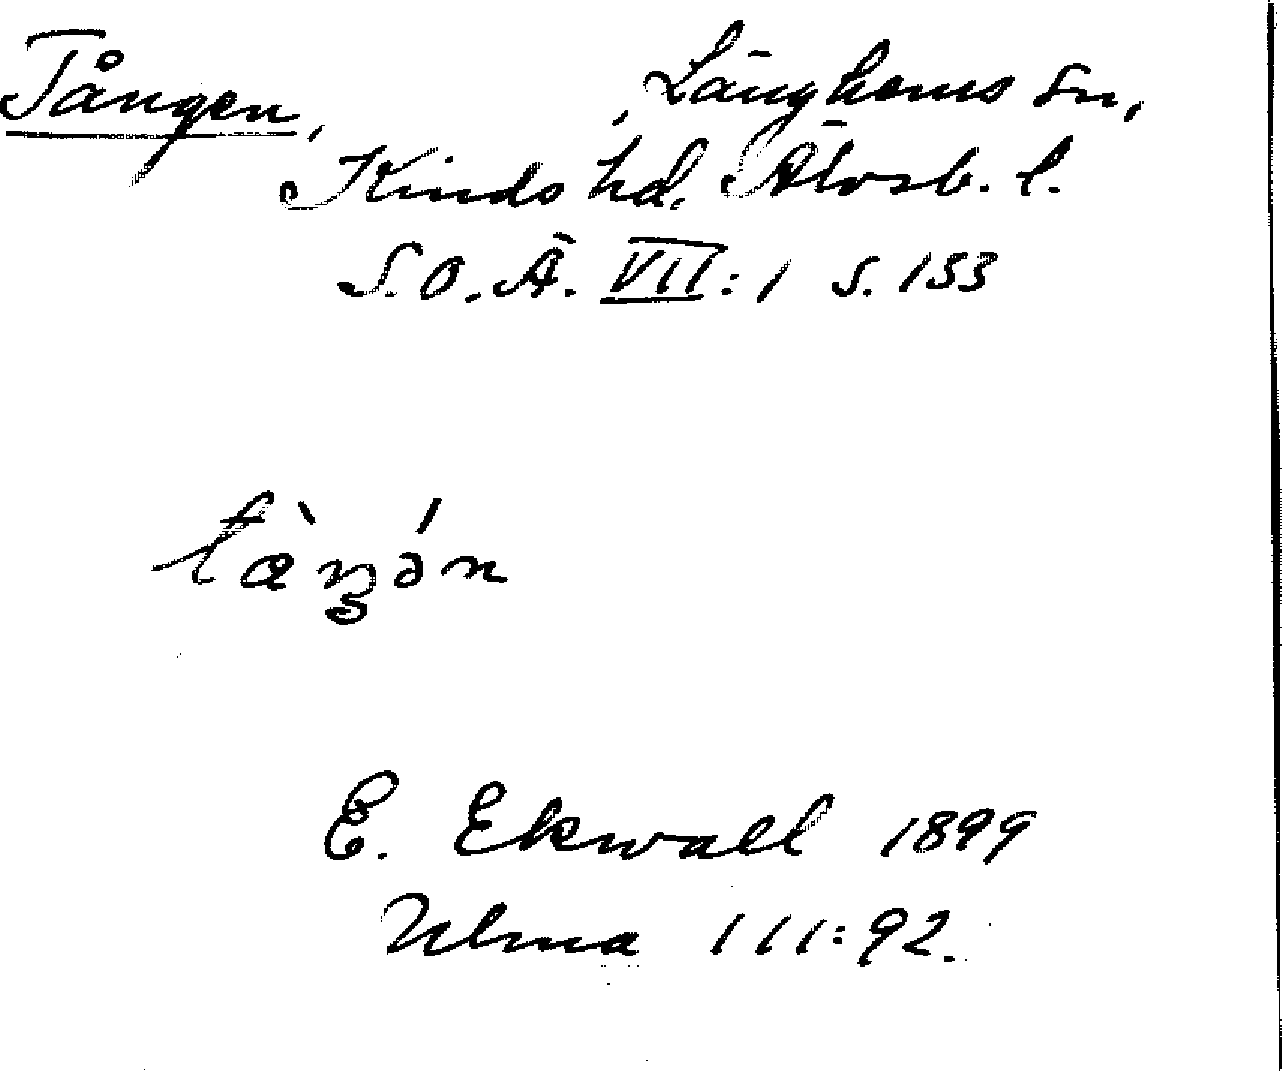 Tången, Länghems sn,
Kinds hd. Älvsb. l.
S.O.Ä. VII:1 s. 153
E. Ekwall 1899
Ulma 111:92.